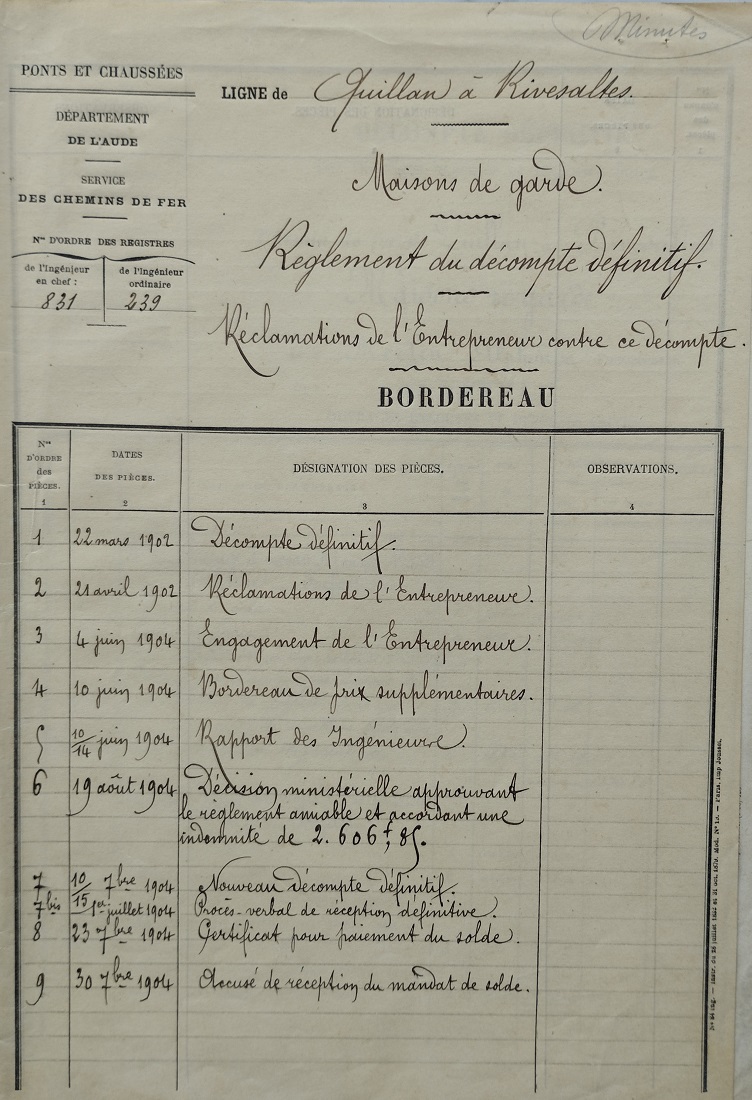 Minutes
PONTS ET CHAUSSÉES
DÉPARTEMENT
DE L'AUDE
SERVICE
DES CHEMINS DE FER
Nos D'ORDRE DES REGISTRES
de l'ingénieur en chef : 831
de l'ingénieur ordinaire 239
LIGNE de Quillan à Rivesaltes.
Maisons de garde.
Règlement du décompte définitif.
Réclamations de l'Entrepreneur contre ce décompte.
BORDEREAU
Nos D'ORDRE des PIÈCES. DATES DES PIÈCES. DÉSIGNATION DES PIÈCES. OBSERVATIONS.
1 2 3 4
1 22 mars 1902 Décompte définitif.
2 21 avril 1902 Réclamations de l'Entrepreneur.
3 4 juin 1904 Engagement de l'Entrepreneur.
4 10 juin 1904 Bordereau de prix supplémentaires.
5 10/14 juin 1904 Rapport des Ingénieurs.
6 19 août 1904 Décision ministérielle approuvant
le règlement amiable et accordant une
indemnité de 2.606f,85.
7 10/15 7bre 1904 Nouveau décompte définitif.
7bis 1er juillet 1904 Procès-verbal de réception définitive.
8 23 7bre 1904 Certificat pour paiement du solde.
9 30 7bre 1904 Accusé de réception du mandat de solde.